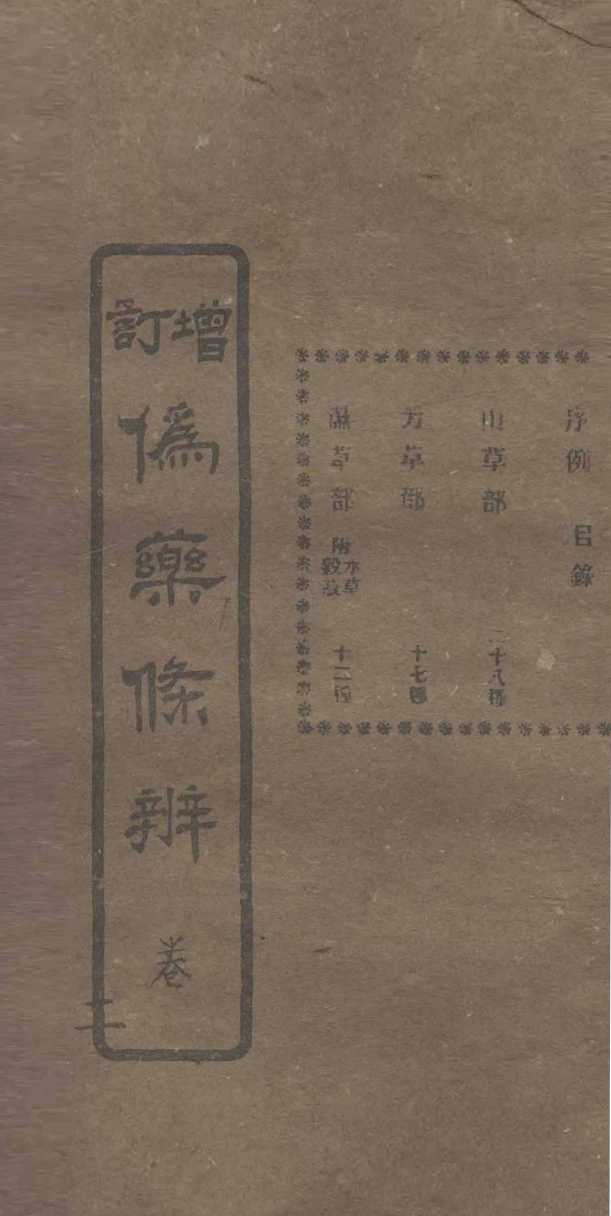 序例 目錄
山草部 二十八種
芳草部 十七種
隰草部 附水草穀菽 十二種
增訂僞藥條辨 卷